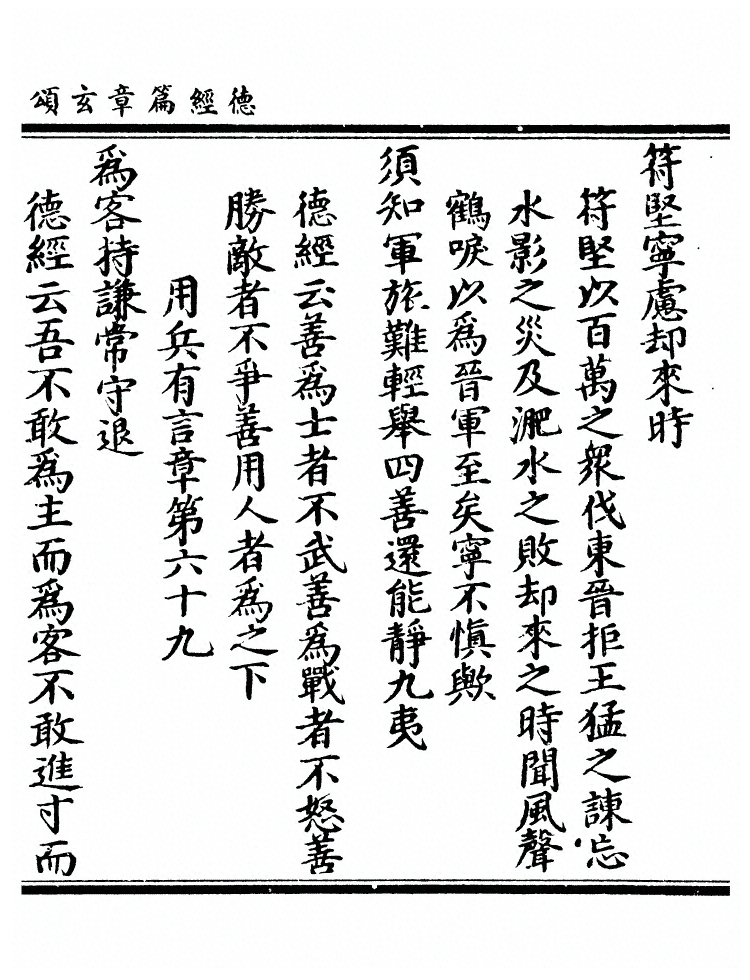 德經篇章玄頌
符堅寧慮却來時
符堅以百萬之衆伐東晉拒王猛之諫忘
水影之災及淝水之敗却來之時聞風聲
鶴唳以爲晉軍至矣寧不慎歟
須知軍旅難輕舉四善還能靜九夷
德經云善爲士者不武善爲戰者不怒善
勝敵者不爭善用人者爲之下
用兵有言章第六十九
爲客持謙常守退
德經云吾不敢爲主而爲客不敢進寸而